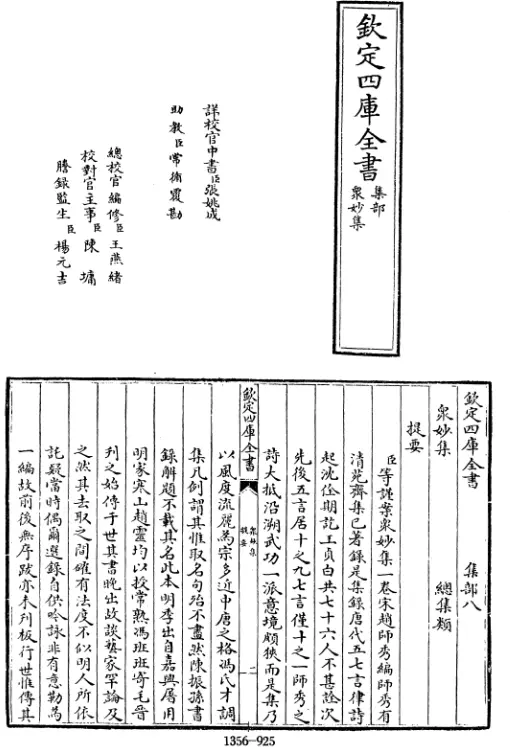 欽定四庫全書
集部
衆妙集
詳校官中書臣張姚成
助教臣常循震勘
總校官編修臣王燕緒
校對官主事臣陳墉
謄錄監生臣楊元吉
欽定四庫全書 集部八
衆妙集 總集類
提要
臣等謹案衆妙集一卷宋趙師秀編師秀有
清苑齋集已著錄是集錄唐代五七言律詩
起沈佺期訖王貞白共七十六人不甚詮次
先後五言居十之九七言僅十之一師秀之
詩大抵沿溯武功一派意境頗狹而是集乃
欽定四庫全書 衆妙集 提要 一
以風度流麗為宗多近中唐之格馮氏才調
集凡例謂其惟取名句殆不盡然陳振孫書
錄解題不載其名此本明季出自嘉興屠用
明家寒山趙靈均以授常熟馮班班寄毛晉
刋之始傳于世其書晚出故談藝家罕論及
之然其去取之間確有法度不似明人所依
託疑當時偶爾選錄自供吟詠非有意勒為
一編故前後無序跋亦未刋板行世惟傳其
1356-925